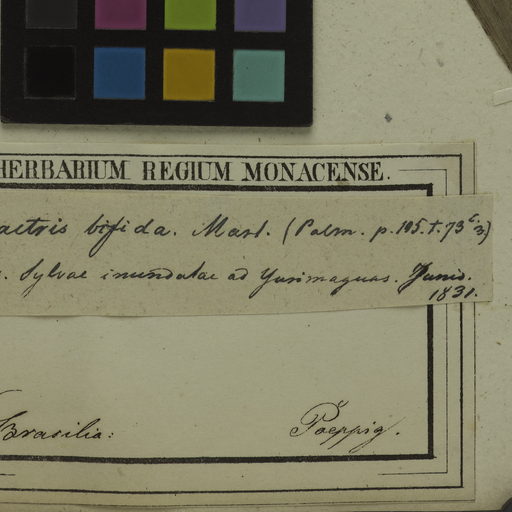 HERBARIUM REGIUM MONACENSE.
actris bifida. Mart. (Palm. p. 105. t. 73 c 3)
. Sylvae inundatae ad Yurimaguas. Junio.
1831.
Brasilia:
Poeppig.